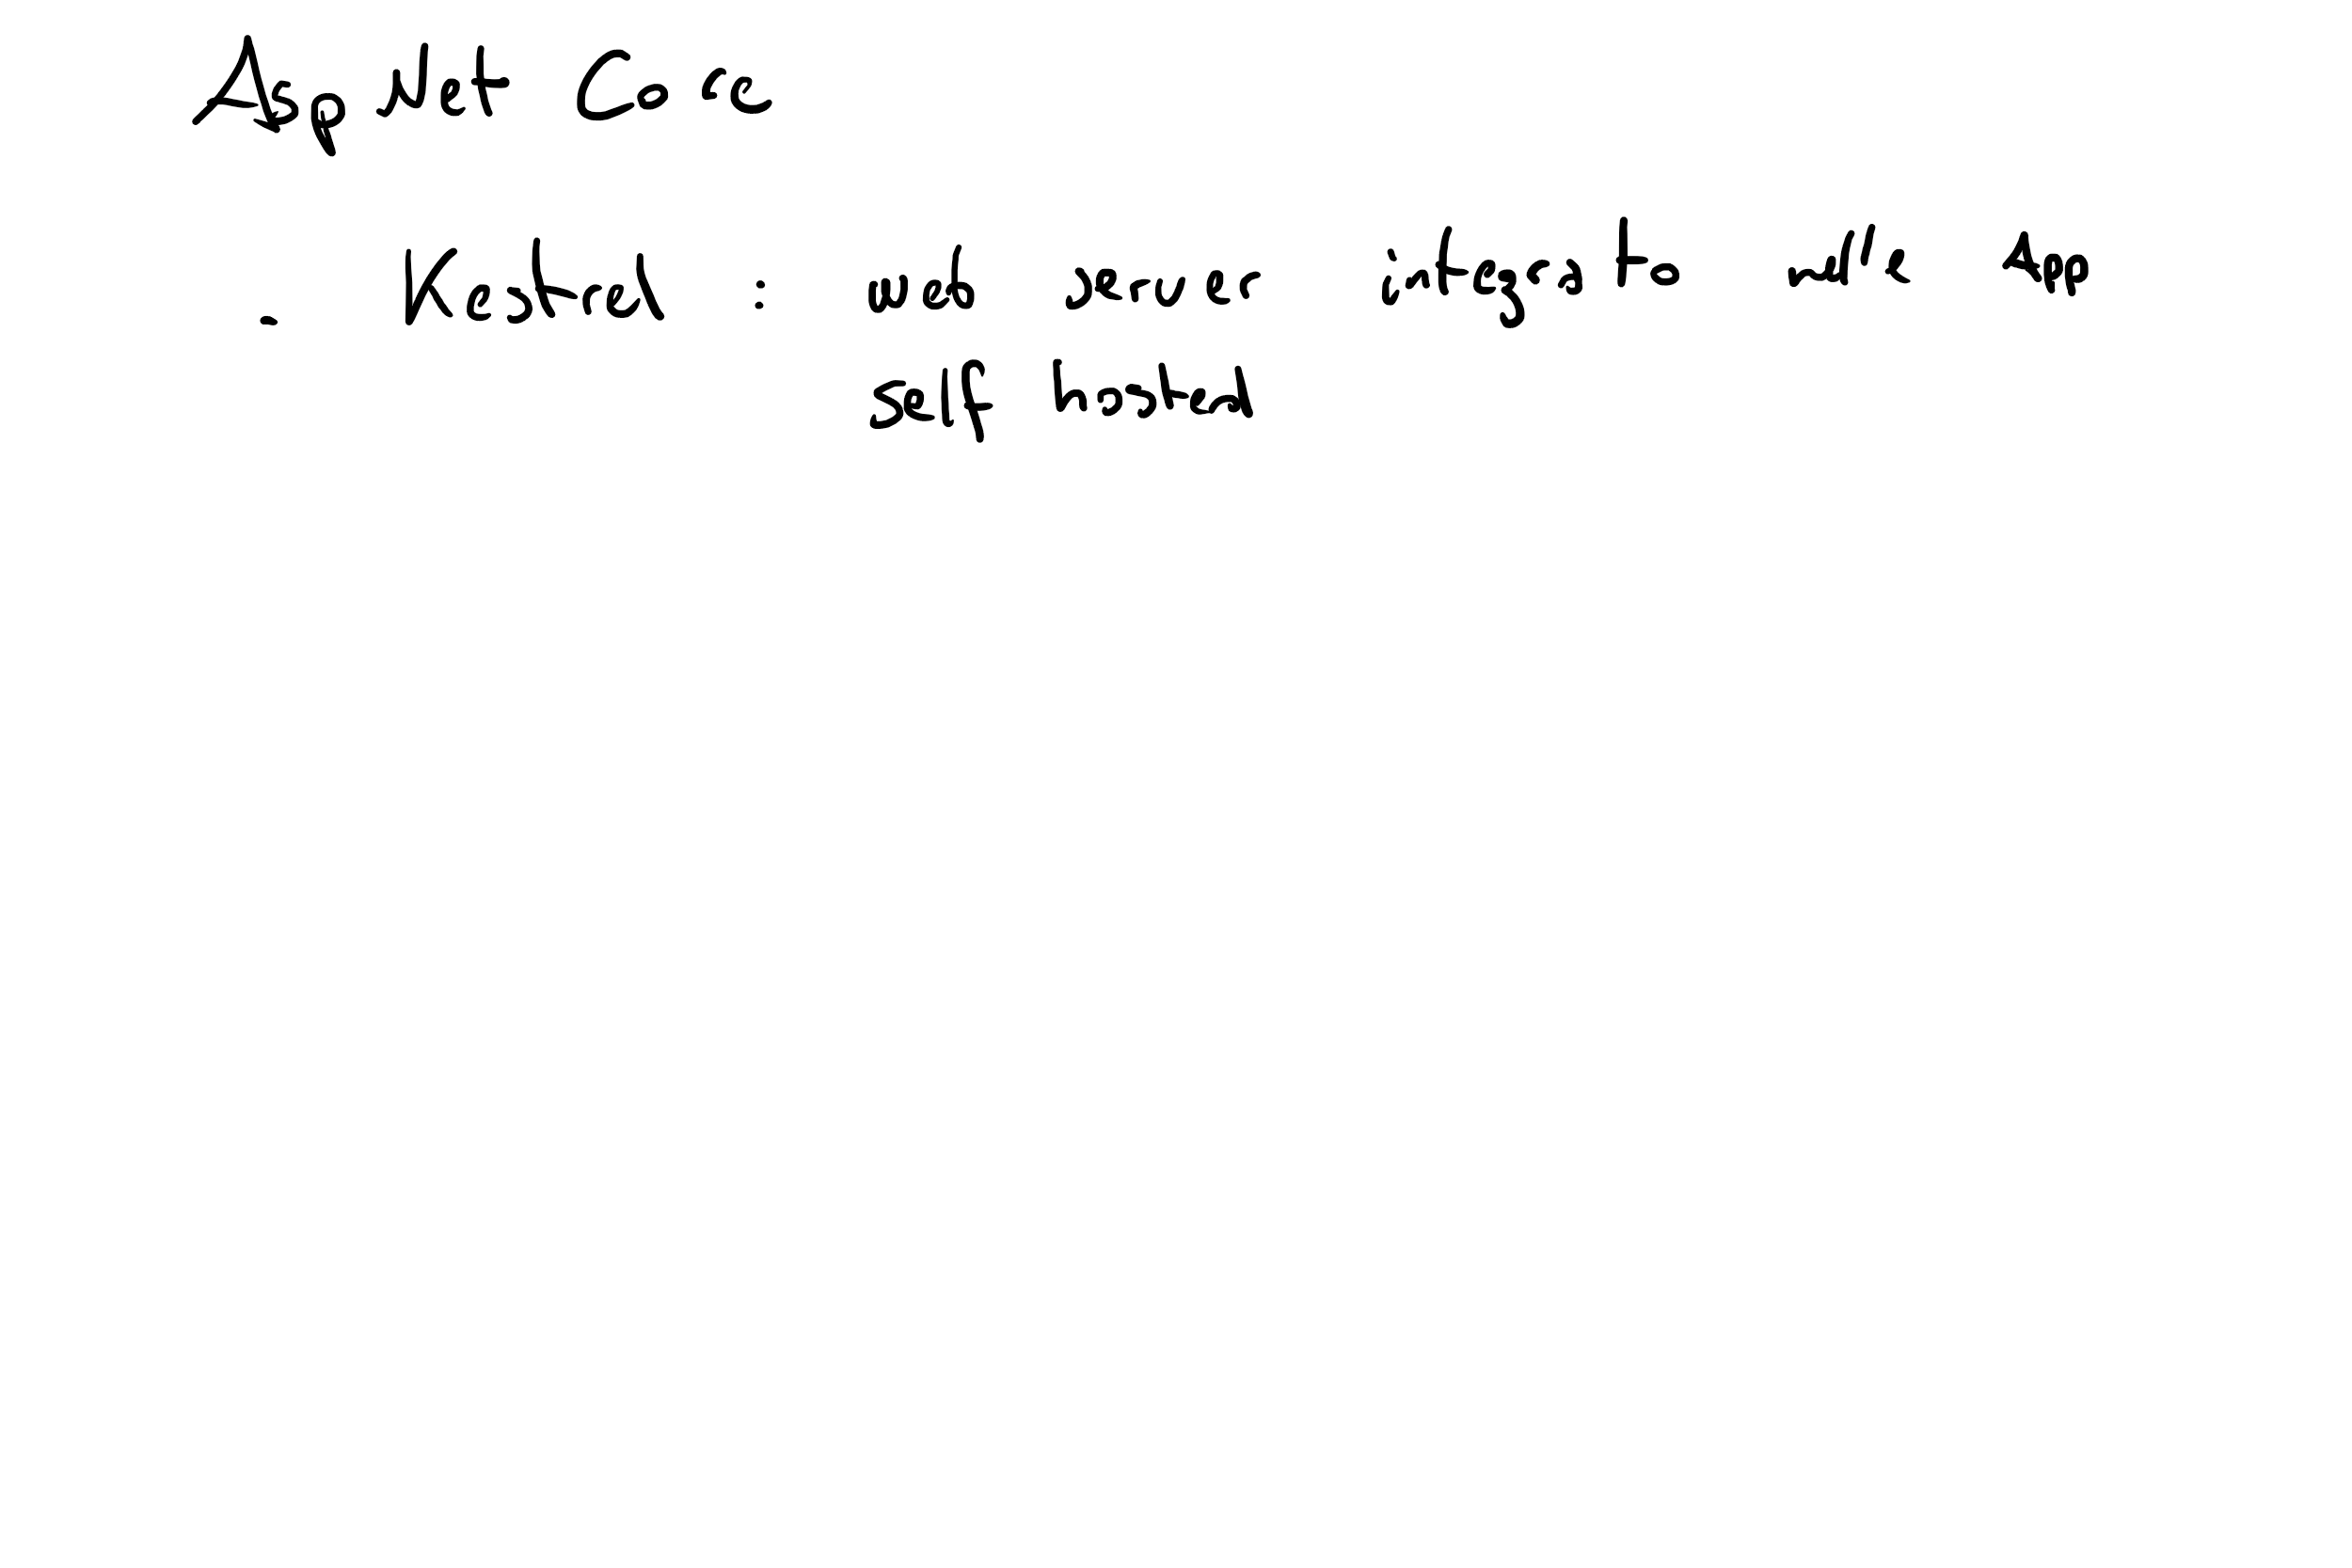 Asp Net Core
- Kestrel : web server integrato nelle App
self hosted